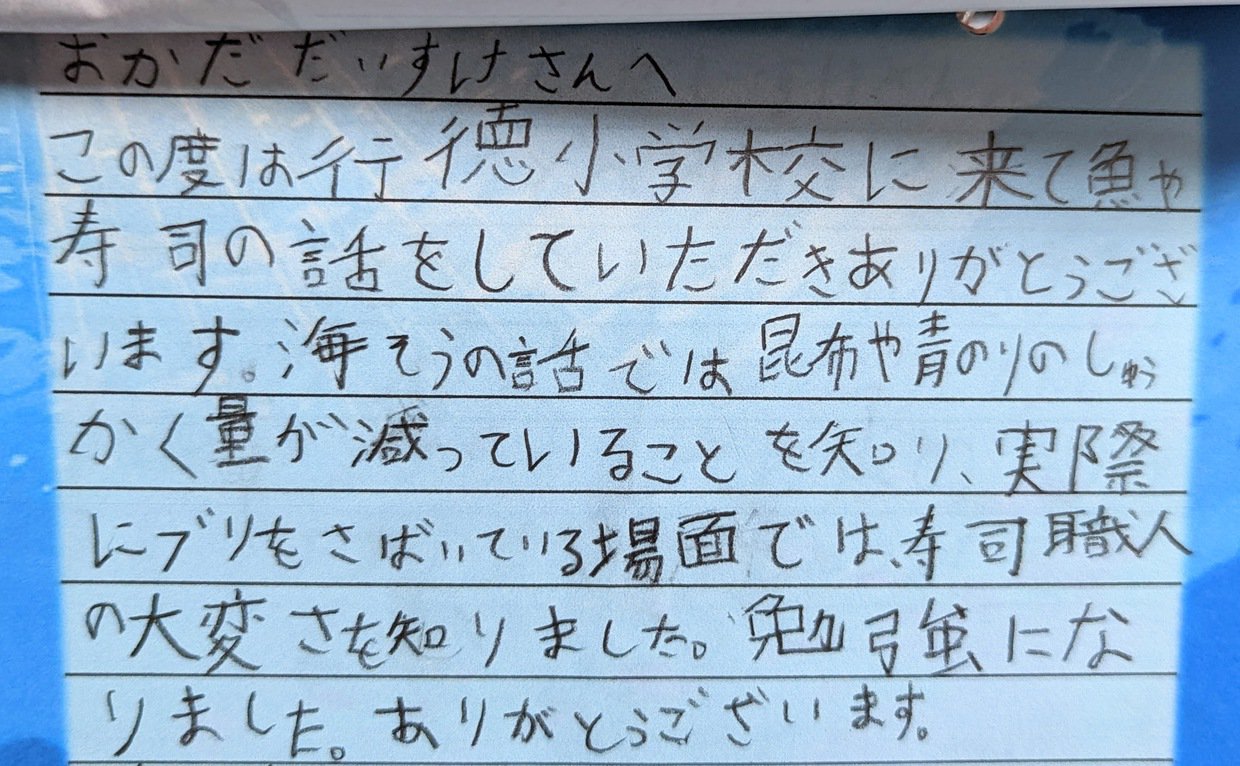 おかだだいすけさんへ
この度は行徳小学校に来て魚や
寿司の話をしていただきありがとうござ
います。海そうの話では昆布や青のりのしゅう
かく量が減っていることを知り、実際
にブリをさばいている場面では、寿司職人
の大変さを知りました。勉強にな
りました。ありがとうございます。